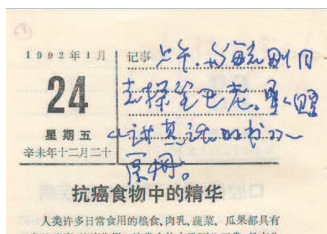 1992年1月
24
星期五
辛未年十二月二十
记事 上午,与
去探望巴老。
《讲真话的书》
抗癌食物中的精华
人类许多日常食用的粮食、肉乳、蔬菜、瓜果都具有